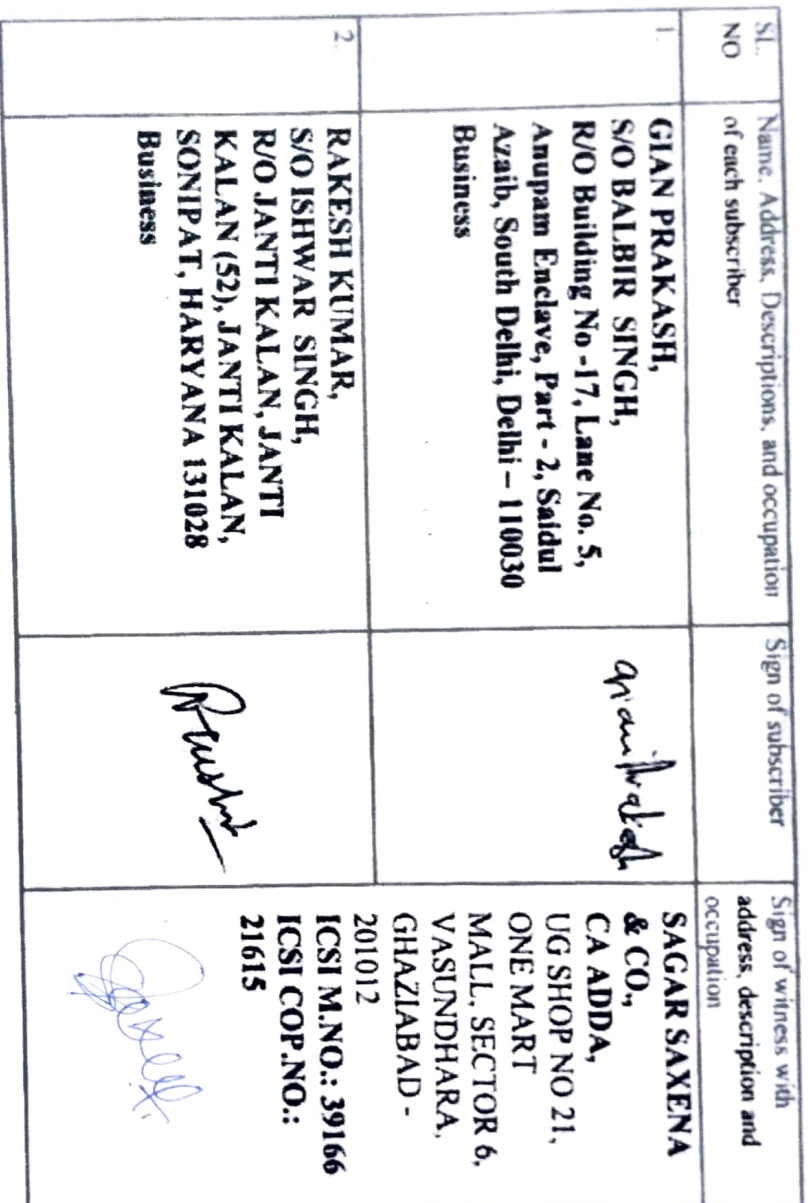 SL.
NO
Name, Address, Descriptions, and occupation
of each subscriber
Sign of subscriber
Sign of witness with
address, description and
occupation
1.
GIAN PRAKASH,
S/O BALBIR SINGH,
R/O Building No -17, Lane No. 5,
Anupam Enclave, Part - 2, Saidul
Azaib, South Delhi, Delhi – 110030
Business
Gian Prakash
SAGAR SAXENA
& CO.,
CA ADDA,
UG SHOP NO 21,
ONE MART
MALL, SECTOR 6,
VASUNDHARA,
GHAZIABAD -
201012
ICSI M.NO.: 39166
ICSI COP.NO.:
21615
2.
RAKESH KUMAR,
S/O ISHWAR SINGH,
R/O JANTI KALAN, JANTI
KALAN (52), JANTI KALAN,
SONIPAT, HARYANA 131028
Business